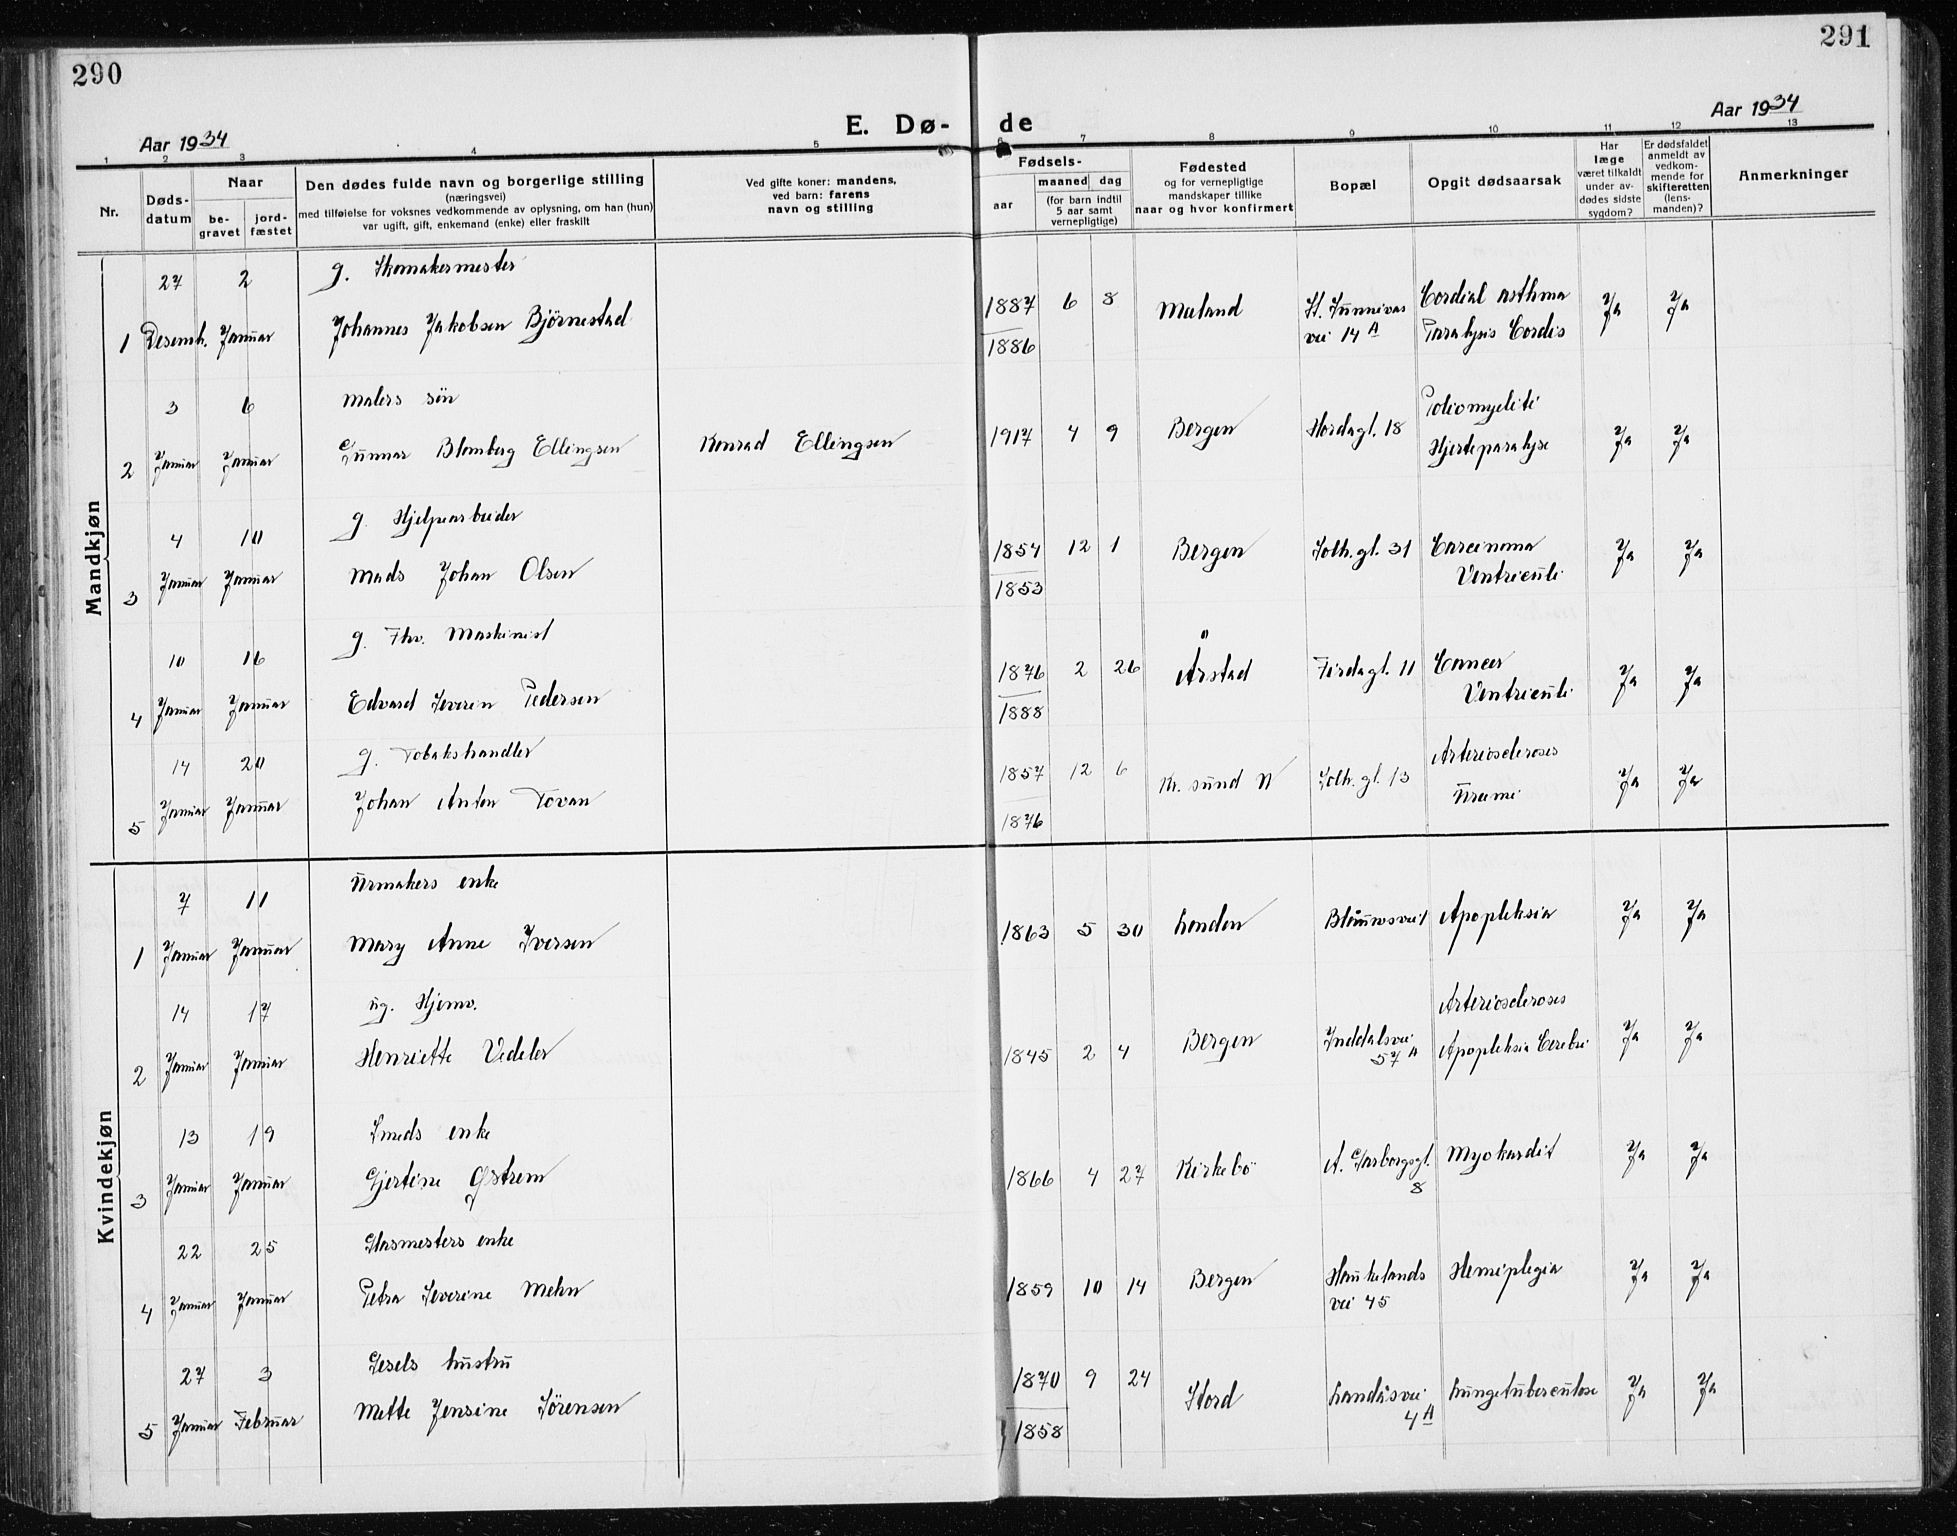 290
291
Aar 1934
E. Dø-
de
Aar 1934
1 2 3 4 5 6 7 8 9 10 11 12 13
Nr.
Døds-
datum
Naar
be-
gravet
jord-
fæstet
Den dødes fulde navn og borgerlige stilling
(næringsvei)
med tilføielse for voksnes vedkommende av oplysning, om han (hun)
var ugift, gift, enkemand (enke) eller fraskilt
Ved gifte koner: mandens,
ved barn: farens
navn og stilling
Fødsels-
aar
maaned dag
(for barn indtil
5 aar samt
vernepligtige)
Fødested
og for vernepligtige
mandskaper tillike
naar og hvor konfirmert
Bopæl
Opgit dødsaarsak
Har
læge
været tilkaldt
under av-
dødes sidste
sygdom?
Er dødsfaldet
anmeldt av
vedkom-
mende for
skifteretten
(lens-
manden)?
Anmerkninger
Mandkjøn
27 2 g. Skomakermester
1 Desemb. Januar Johannes Jakobsen Bjørnestad 1887 6 8 Maland St. Sunnivas Cordial asthma Ja Ja
1886 vei 14 A Paralysis Cordis
3 6 Malers sön
2 Januar Januar Gunnar Blomberg Ellingsen Konrad Ellingsen 1917 4 9 Bergen Hordagt. 18 Poliomyeliti Ja Ja
Hjerteparalyse
4 10 g. Hjelpearbeider
3 Januar Januar Mads Johan Olsen 1854 12 1 Bergen Solh. gt. 31 Carcinoma Ja Ja
1853 Ventriculi
10 16 g. Fhv. Maskinist
4 Januar Januar Edvard Severin Pedersen 1876 2 26 Årstad Firdagt. 11 Cancer Ja Ja
1888 Ventriculi
14 20 g. Tobakshandler
5 Januar Januar Johan Anton Tovan 1857 12 6 Kr. sund N Solh. gt. 13 Arteriosclerosis Ja Ja
1876 Uremi
Kvindekjøn
7 11 Urmakers enke
1 Januar Januar Mary Anne Iversen 1863 5 30 London Apopleksia Ja Ja
14 17 ug. Hjemv.
2 Januar Januar Henriette Vedeler 1845 2 4 Bergen Inddalsvei Arteriosclerosis Ja Ja
57 A Apopleksia Cerebri
13 19 Smeds enke
3 Januar Januar Gjertine Østrem 1866 4 27 Kirkebö A. Garborgsgt. Myokardit Ja Ja
8
22 25 Gasmesters enke
4 Januar Januar Petra Severine Mehn 1859 10 14 Bergen Haukelands Hemiplegia Ja Ja
vei 45
27 3 Gesels hustru
5 Januar Februar Mette Jensine Sörensen 1870 9 24 Stord Landåsvei Lungetuberculose Ja Ja
1858 4 A